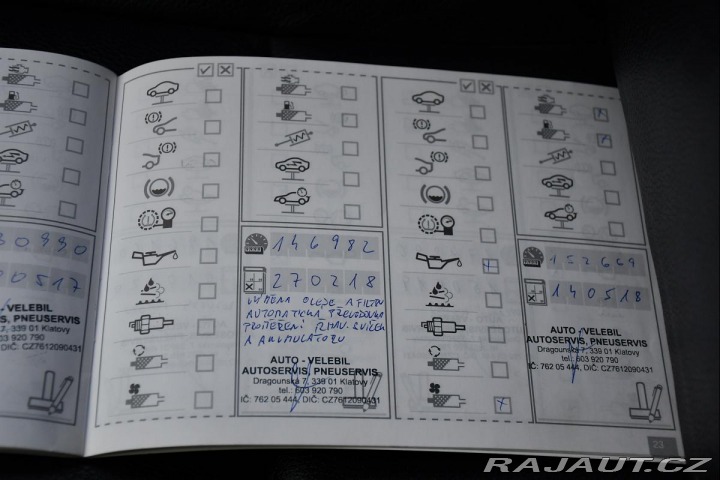 30990
00517
VELEBIL
S, PNEUSERVIS
7, 339 01 Klatovy
603 920 790
DIČ: CZ7612090431
146982
270218
VÝMĚNA OLEJE A FILTRU
AUTOMATICKÁ PŘEVODOVKA
A AKUMULÁTORU
AUTO - VELEBIL
AUTOSERVIS, PNEUSERVIS
Dragounská 7, 339 01 Klatovy
tel.: 603 920 790
IČ: 762 05 444, DIČ: CZ7612090431
152669
140518
AUTO - VELEBIL
AUTOSERVIS, PNEUSERVIS
Dragounská 7, 339 01 Klatovy
tel.: 603 920 790
IČ: 762 05 444, DIČ: CZ7612090431
23
RAJAUT.CZ